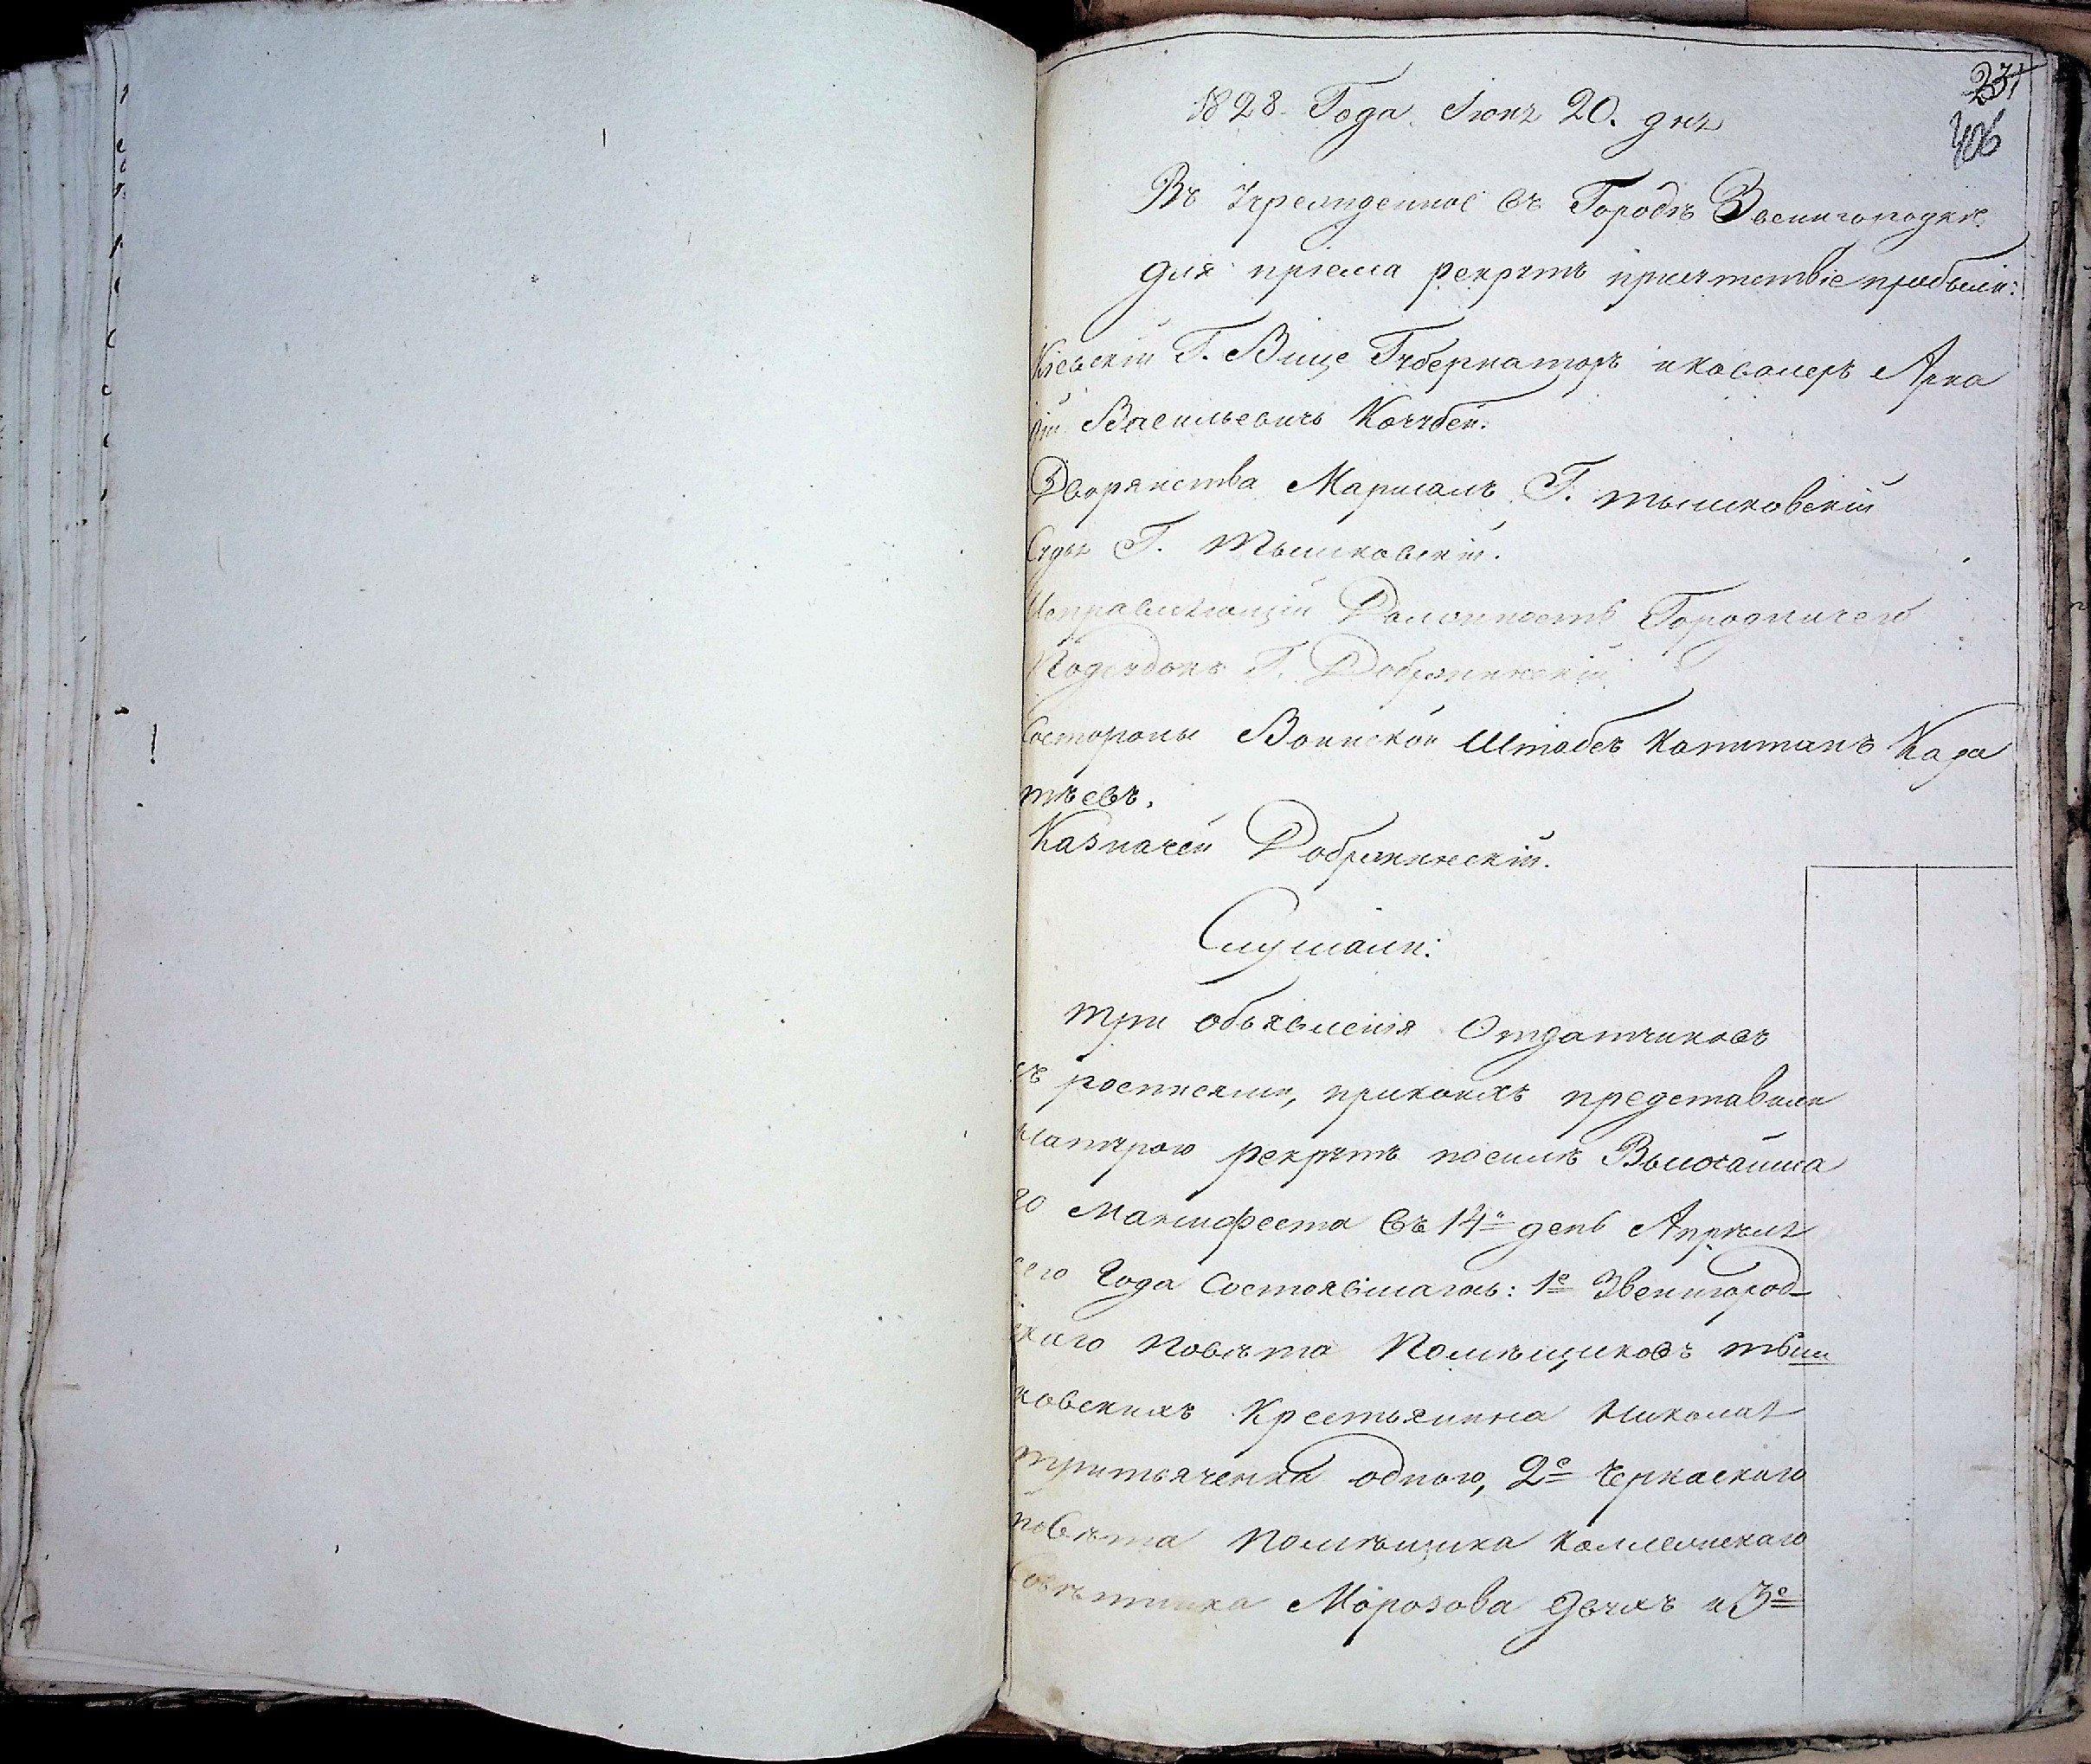 231
406
1828. Года Іюня 20. дня
Въ Учрежденное въ Городѣ Звенигородкѣ
для пріема рекрутъ присутствіе прибыли:
Кіевскій Г. Вице Губернаторъ и кавалеръ Арка
дій Васильевичъ Кочубей.
Дворянства Маршалъ Г. Тышковскій
Судья Г. Тышковскій.
Исправляющій Должность Городничего
Г. Добржинскій
Состороны Воинской Штабсъ Капитанъ Кара
тѣевъ.
Казначей Добржинскій.
Слушали:
три объявленія Отдатчиковъ
съ росписями, прикоихъ представили
рекрутъ посилѣ Высочайша
го Манифеста въ 14й день Апрѣля
сего Года Состоявшагось: 1е Звенигород-
скаго Повѣта Помѣщиковъ тыш
ковскихъ Крестьянина Николая
тритьяченка одного, 2е Черкаскаго
повѣта помѣщика Коллежскаго
Совѣтника Морозова двухъ и 3е